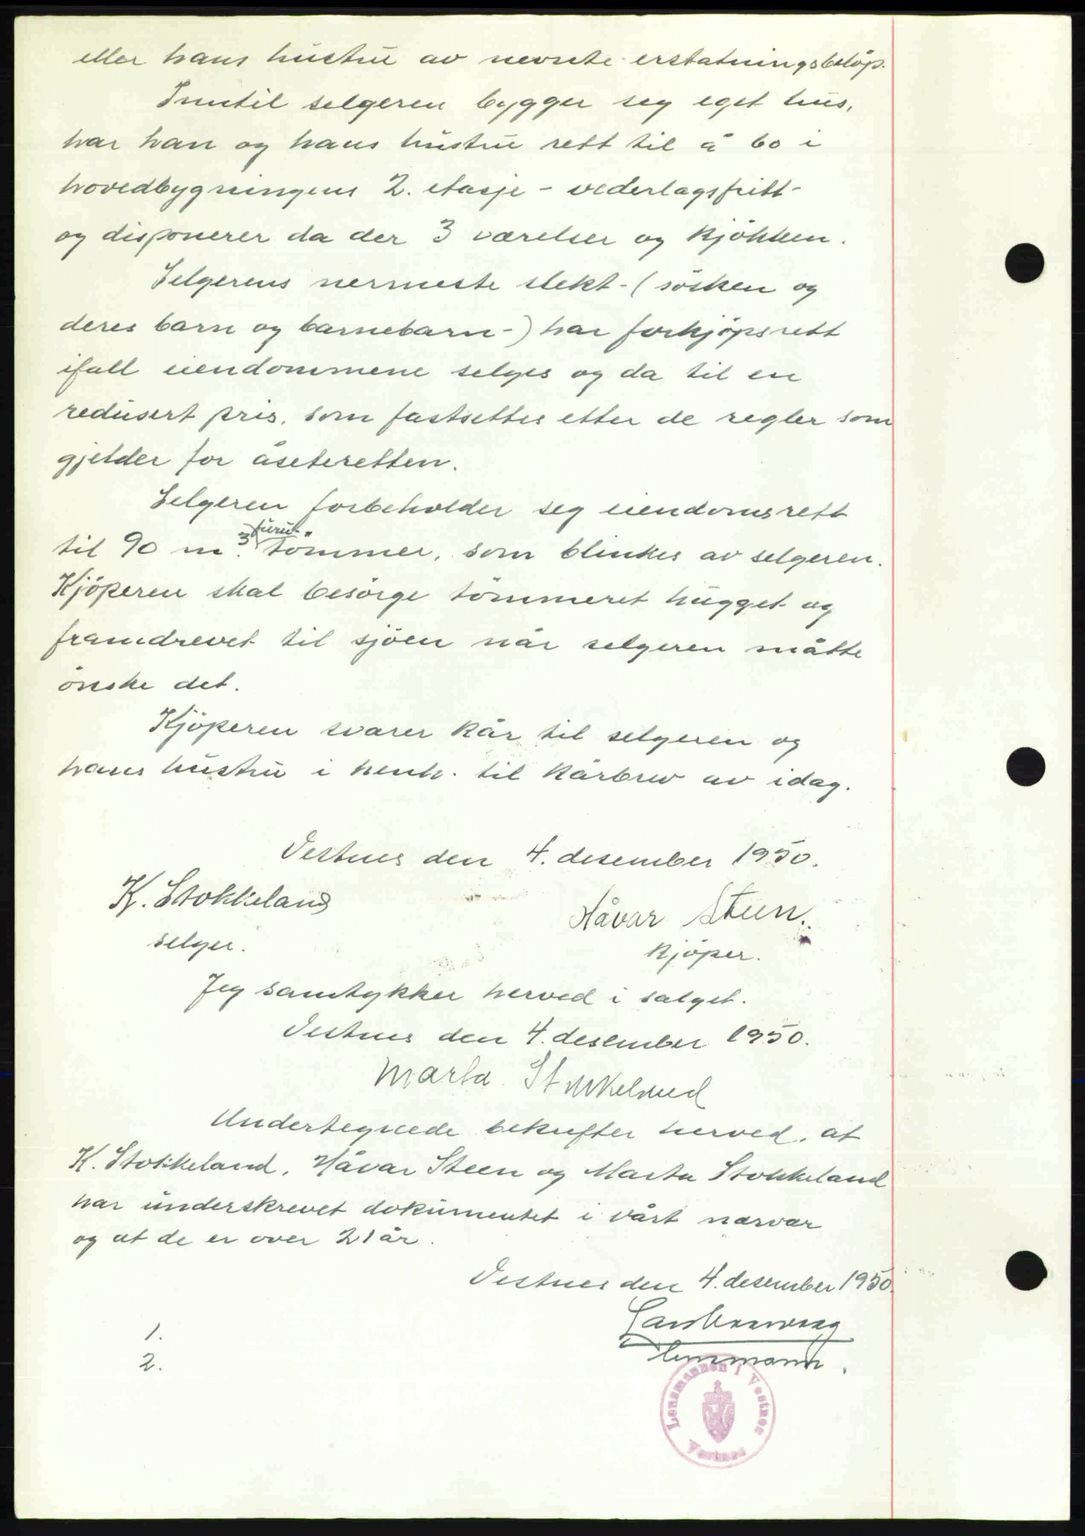 eller hans hustru av nevnte erstatningsbeløp.
Inntil selgeren bygger seg eget hus,
har han og hans hustru rett til å bo i
hovedbygningens 2. etasje - vederlagsfritt -
og disponerer da der 3 værelser og kjökken.
Selgerens nermeste slekt - ( søsken og
deres barn og barnebarn - ) har forkjøpsrett
ifall eiendommene selges og da til en
redusert pris, som fastsettes etter de regler som
gjelder for åseteretten.
Selgeren forbeholder seg eiendomsrett
furu-
til 90 m3. tömmer, som blinkes av selgeren.
Kjöperen skal besörge tömmeret hugget og
framdrevet til sjöen når selgeren måtte
önske det.
Kjöperen svarer kår til selgeren og
hans hustru i henh. til kårbrev av idag.
Vestnes den 4. desember 1950.
K. Stokkeland
Håvar Steen.
selger.
kjöper.
Jeg samtykker herved i salget.
Vestnes den 4. desember 1950.
Marta Stokkeland
Undertegnede bekrefter herved, at
K. Stokkeland, Håvar Steen og Marta Stokkeland
har underskrevet dokumentet i vårt nærvær
og at de er over 21 år.
Vestnes den 4. desember 1950.
1.
2.
Lensmannen i Vestnes
Vestnes